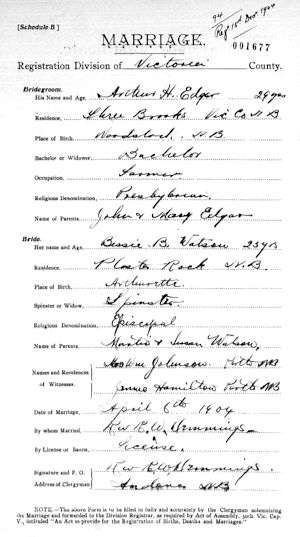 [Schedule B]
94
Reg 15th Dec. 1904
MARRIAGE.
001677
Registration Division of Victoria County.
Bridegroom.
His Name and Age, Arthur H. Edgar 29 yrs
Residence, Three Brooks Vic Co N B
Place of Birth Woodstock, N.B
Bachelor or Widower, Bachelor
Occupation, Farmer
Religious Denomination, Presbyterian
Name of Parents, John & Mary Edgar
Bride.
Her name and Age, Bessie B. Watson 23 yrs
Residence, Plaster Rock N.B.
Place of Birth, Arthurette
Spinster or Widow, Spinster
Religious Denomination, Episcopal
Name of Parents, & Susan Watson,
Names and Residences of Witnesses. Wm Johnson, Perth NB
Jennie Hamilton Perth NB
Date of Marriage, April 6th 1904
By whom Married, Rev B.W. Demmings
By License or Banns, License.
Signature and P. O. Address of Clergyman Rev B W Demmings.
Andover NB
NOTE.—The above Form is to be filled in fully and accurately by the Clergyman solemnizing
the Marriage and forwarded to the Division Registrar, as required by Act of Assembly, 50th Vic. Cap.
V., intituled "An Act to provide for the Registration of Births, Deaths and Marriages."